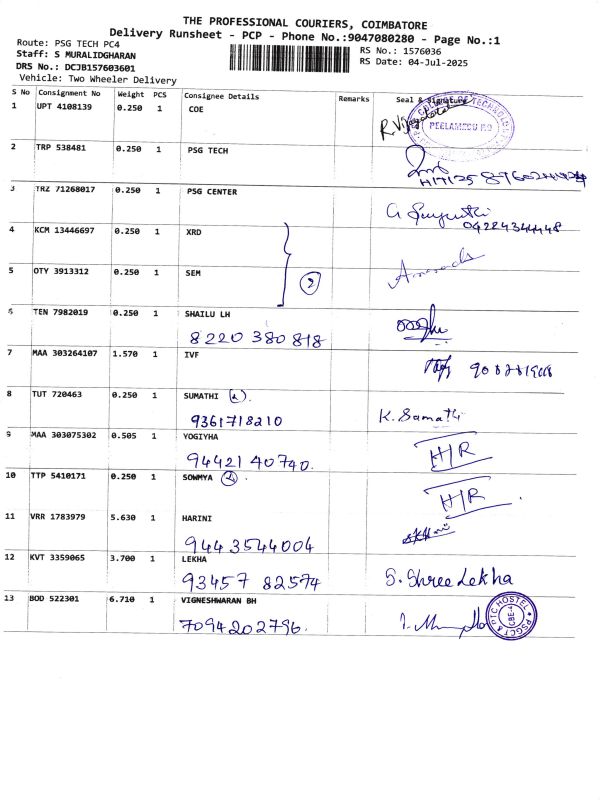 THE PROFESSIONAL COURIERS, COIMBATORE
Delivery Runsheet - PCP - Phone No.:9047080280 - Page No.:1
Route: PSG TECH PC4
Staff: S MURALIDGHARAN
DRS No.: DCJB157603601
Vehicle: Two Wheeler Delivery
RS No.: 1576036
RS Date: 04-Jul-2025
S No Consignment No Weight PCS Consignee Details Remarks Seal & Signature
1 UPT 4108139 0.250 1 COE
PEELAMEDU
2 TRP 538481 0.250 1 PSG TECH
3 TRZ 71268017 0.250 1 PSG CENTER
04224344448
4 KCM 13446697 0.250 1 XRD
5 OTY 3913312 0.250 1 SEM
2
6 TEN 7982019 0.250 1 SHAILU LH
8220 380 818
7 MAA 303264107 1.570 1 IVF
8 TUT 720463 0.250 1 SUMATHI
9361718210 K. Sumathi
9 MAA 303075302 0.505 1 YOGIYHA
94421 40740. H/R
10 TTP 5410171 0.250 1 SOWMYA
H/R
11 VRR 1783979 5.630 1 HARINI
9443544004
12 KVT 3359065 3.700 1 LEKHA
93457 82574 S. Shree Lekha
13 BOD 522301 6.710 1 VIGNESHWARAN BH
7094202796.
PSGCT & PTC HOSTEL
CBE-4